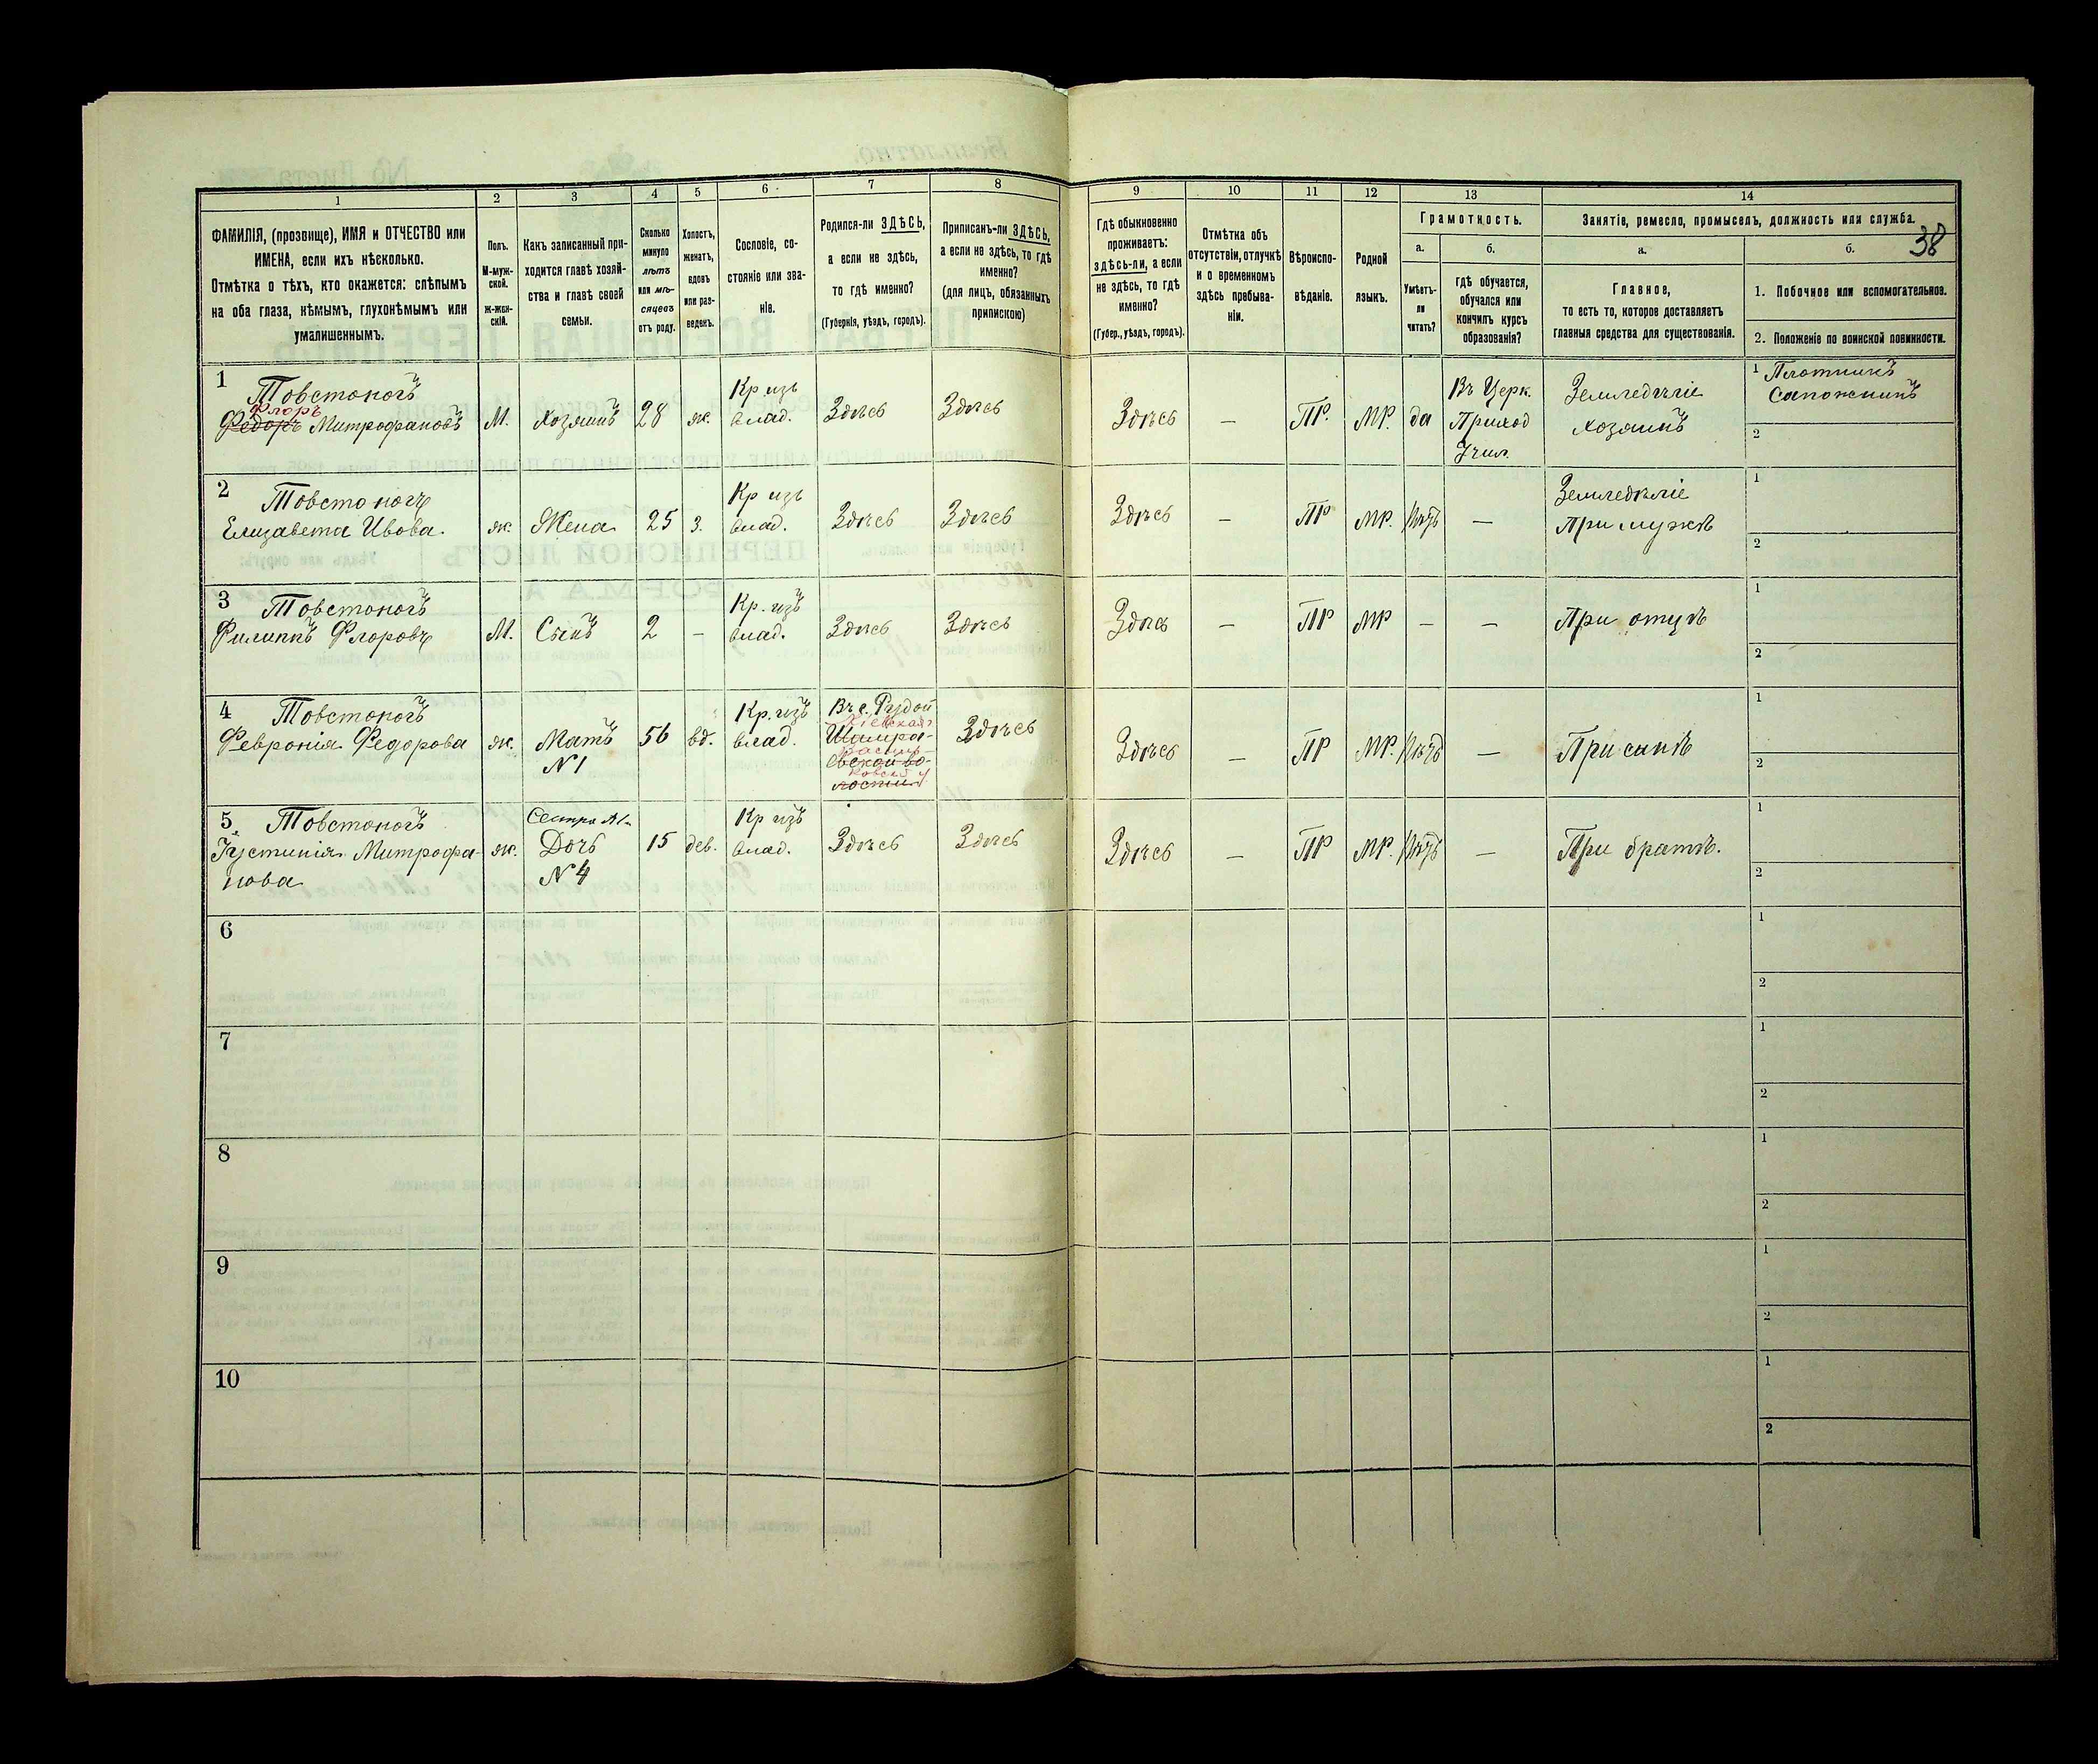 38
1 2 3 4 5 6 7 8 9 10 11 12 13 14
ФАМИЛІЯ, (прозвище), ИМЯ и ОТЧЕСТВО или
ИМЕНА, если ихъ нѣсколько.
Отмѣтка о тѣхъ, кто окажется: слѣпымъ
на оба глаза, нѣмымъ, глухонѣмымъ или
умалишеннымъ.
Полъ.
М-муж-
ской.
Ж-жен-
скій.
Какъ записанный при-
ходится главѣ хозяй-
ства и главѣ своей
семьи.
Сколько
минуло
лѣтъ
или мѣ-
сяцевъ
отъ роду.
Холостъ,
женатъ,
вдовъ
или раз-
веденъ.
Сословіе, со-
стояніе или зва-
ніе.
Родился-ли ЗДѢСЬ,
а если не здѣсь,
то гдѣ именно?
(Губернія, уѣздъ, городъ).
Приписанъ-ли ЗДѢСЬ,
а если не здѣсь, то гдѣ
именно?
(для лицъ, обязанныхъ
припискою)
Гдѣ обыкновенно
проживаетъ:
здѣсь-ли, а если
не здѣсь, то гдѣ
именно?
(Губер., уѣздъ, городъ).
Отмѣтка объ
отсутствіи, отлучкѣ
и о временномъ
здѣсь пребыва-
ніи.
Вѣроиспо-
вѣданіе.
Родной
языкъ.
Грамотность.
а.
Умѣетъ-
ли
читать?
б.
гдѣ обучается,
обучался или
кончилъ курсъ
образованія?
Занятіе, ремесло, промыселъ, должность или служба.
а.
Главное,
то есть то, которое доставляетъ
главныя средства для существованія.
б.
1. Побочное или вспомогательное.
2. Положеніе по воинской повинности.
1
Товстоногъ
Флоръ
Федоръ Митрофановъ
М.
Хозяинъ
28
ж.
Кр изъ
влад.
Здѣсь
Здѣсь
Здѣсь
—
ПР.
МР.
да
Въ Церк.
Приход
Учил.
Земледѣліе
хозяинъ
1 Плотникъ
Сапожникъ
2
2
Товстоногъ
Елизавета Ивова.
ж.
Жена
25
з.
Кр изъ
влад.
Здѣсь
Здѣсь
Здѣсь
—
ПР
МР.
нѣтъ
—
Земледѣліе
При мужѣ
1
2
3
Товстоногъ
Филиппъ Флоровъ
М.
Сынъ
2
—
Кр. изъ
влад.
Здѣсь
Здѣсь
Здѣсь
—
ПР
МР
—
—
При отцѣ
1
2
4
Товстоногъ
Февронія Федорова
ж.
Мать
N 1
56
вд.
Кр. изъ
влад.
Въ с. Рудой
Кіевская
Шамра-
евской во-
лости
Здѣсь
Здѣсь
—
ПР
МР.
нѣтъ
—
При сынѣ
1
2
5
Товстоногъ
Іустинія Митрофа-
нова
ж.
Сестра №1
Дочь
N 4
15
дев.
Кр изъ
влад.
Здѣсь
Здѣсь
Здѣсь
—
ПР
МР.
нѣтъ
—
При братѣ.
1
2
6
1
2
7
1
2
8
1
2
9
1
2
10
1
2